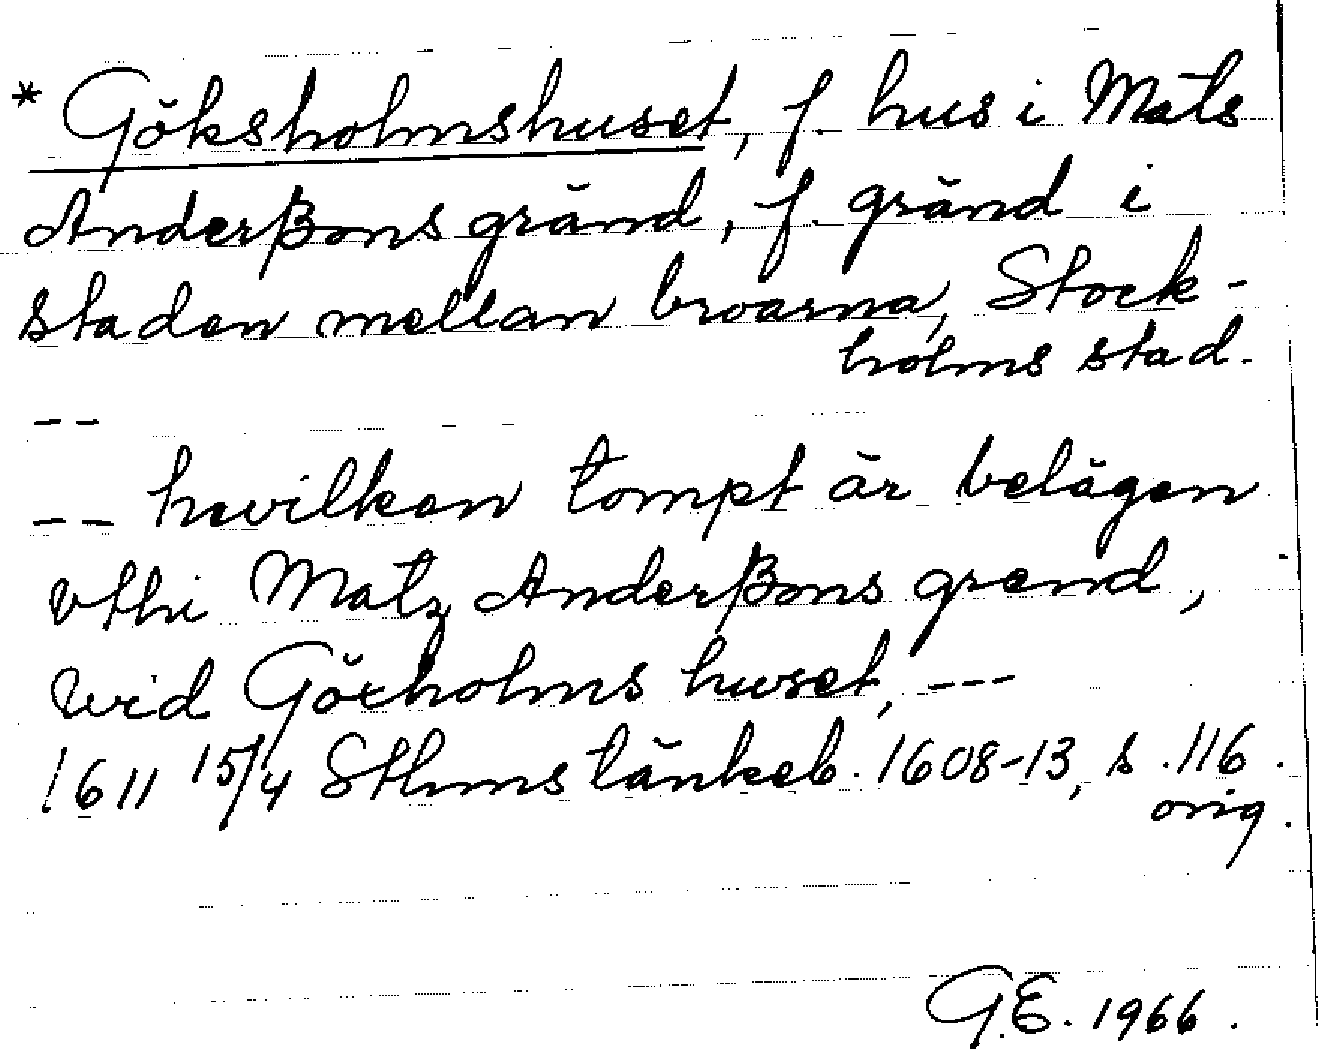 * Göksholmshuset, f. hus i Mats
Anderßons gränd, f. gränd i
staden mellan broarna, Stock-
holms stad.
--
-- hwilken tompt är belägen
vthi Matz Anderßons grend,
wid Göxholms huset, ---
1611 15/4 Sthms tänkeb. 1608-13, s. 116.
orig.
G.E. 1966.